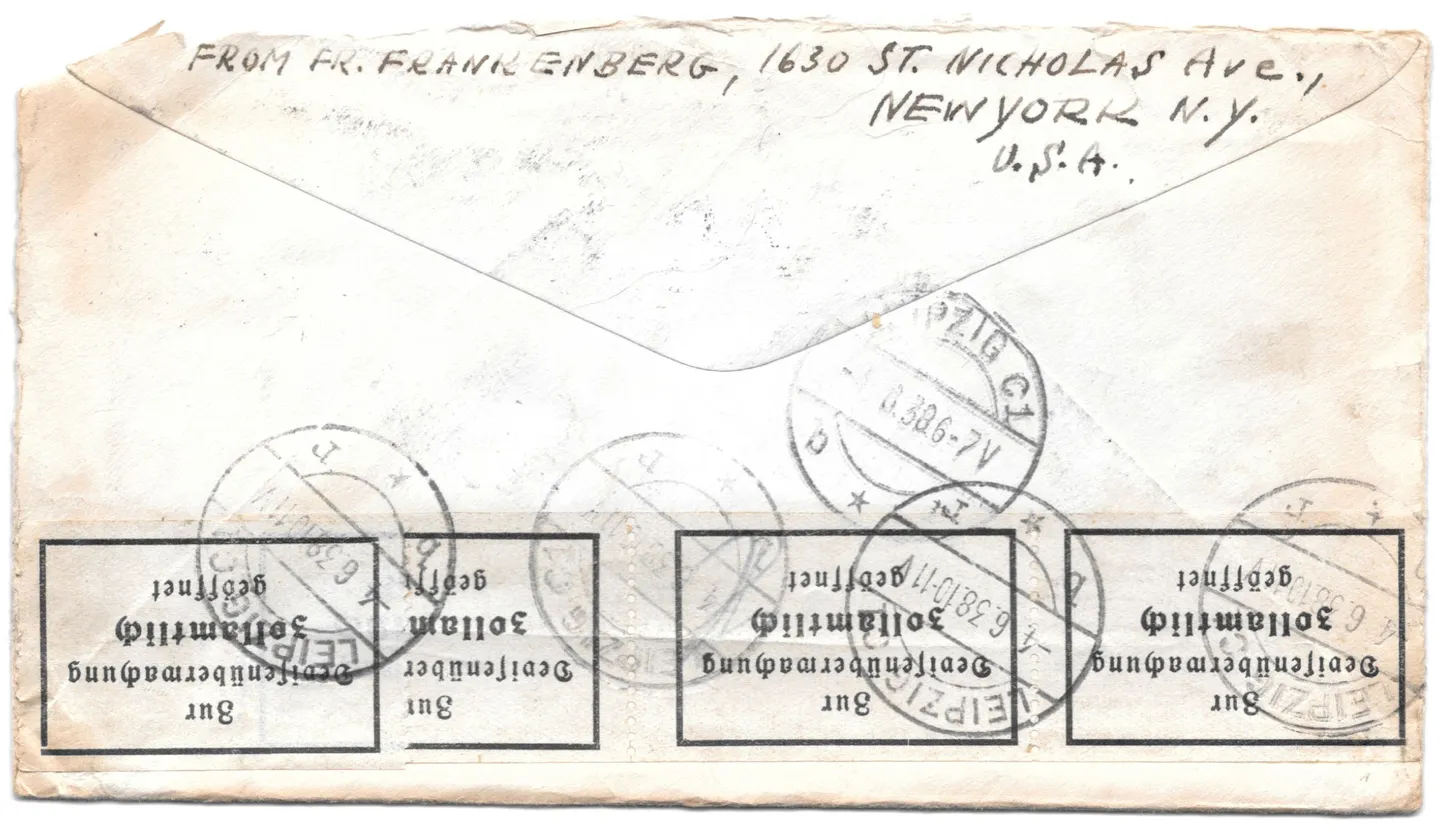 FROM FR. FRANKENBERG, 1630 ST. NICHOLAS Ave.,
NEW YORK N.Y.
U.S.A.
LEIPZIG C1
.38.6-7V
b
LEIPZIG C1
4.6.38.10-11V
b
LEIPZIG
b
LEIPZIG C1
4.6.38.10-11V
b
LEIPZIG
4.6.38.10-11V
Zur
Devisenüberwachung
zollamtlich
geöffnet
Zur
Devisenüber
zollam
geöff
Zur
Devisenüberwachung
zollamtlich
geöffnet
Zur
Devisenüberwachung
zollamtlich
geöffnet